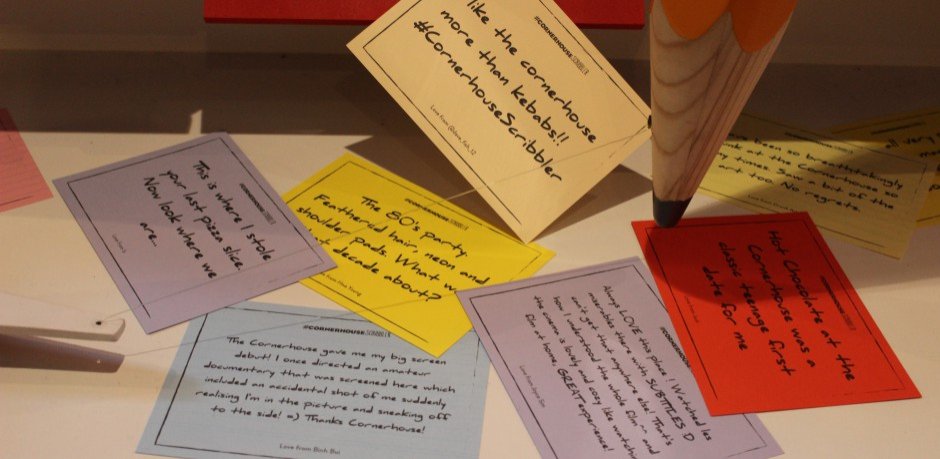 #CORNERHOUSESCRIBBLER
like the cornerhouse
more than kebabs!!
#CornerhouseScribbler
This is where I stole
your last pizza slice.
Now look where we
are..
#CORNERHOUSE
The 80's party.
Feathered hair, neon and
shoulder pads. What
decade about?
#CORNERHOUSESCRIBBLER
The Cornerhouse gave me my big screen
debut! I once directed an amateur
documentary that was screened here which
included an accidental shot of me suddenly
realising I'm in the picture and sneaking off
to the side! =) Thanks Cornerhouse!
Love from Binh Bui
#CORNERHOUSE
Always LOVE this place! Watched les
miserables there with SUBTITLES :D
can't get that anywhere else! That's
how I understood the whole film ^^ and
the cinema is lovely and cosy like watching
film at home, GREAT experience!
#CORNERHOUSESCRIBBLER
Hot Chocolate at the
Cornerhouse was a
classic teenage first
date for me
been so breathtakingly
at the Cornerhouse so
many times. Saw a bit of the
art too. No regrets.
all very